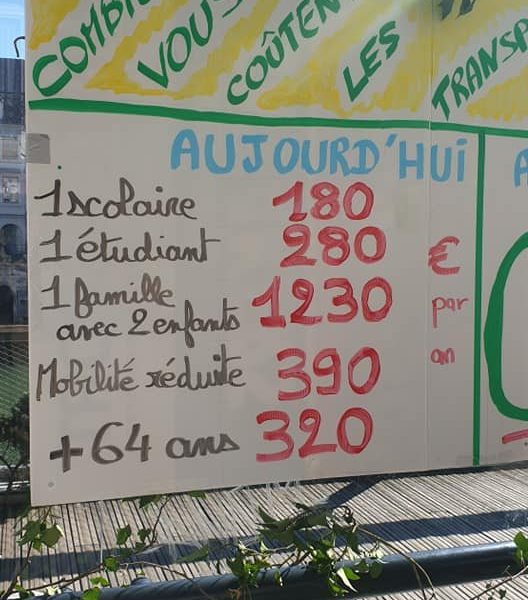 COMBIEN VOUS COÛTENT LES TRANSP
AUJOURD'HUI
1 scolaire 180
1 étudiant 280 €
1 famille
avec 2 enfants 1230 par
an
Mobilité réduite 390
+ 64 ans 320